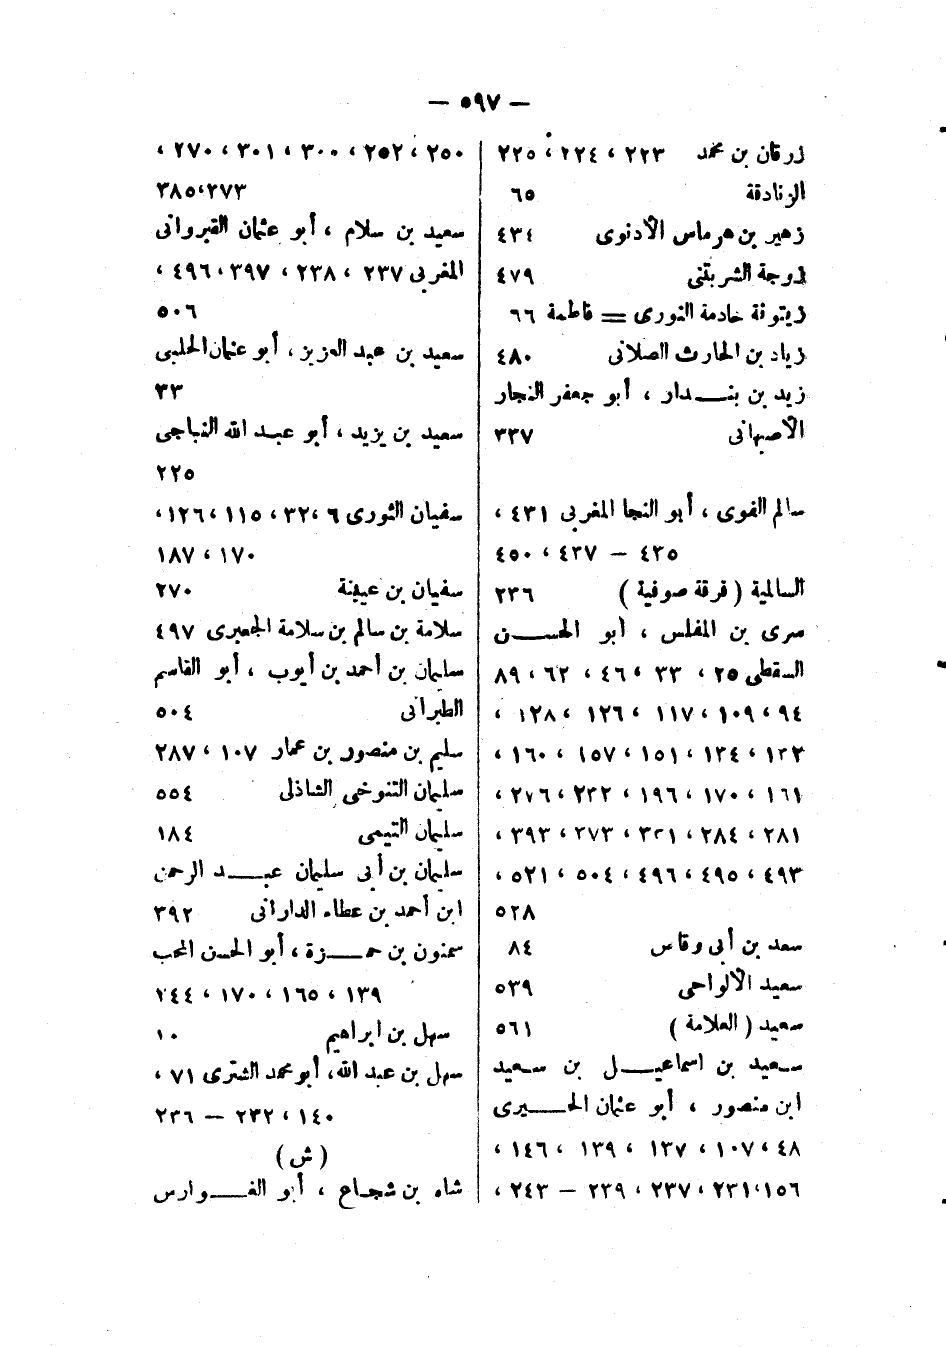 — ٥٩٧ —
زرقان بن محمد ٢٢٣ ، ٢٢٤ ، ٢٢٥
الزنادقة ٦٥
زهير بن هرماس الأدنوى ٤٣٤
زوجة الشربتنى ٤٧٩
زيتونة خادمة النورى = فاطمة ٦٦
زياد بن الحارث الصلائى ٤٨٠
زيد بن بندار ، أبو جعفر النجار
الأصبهانى ٣٣٧
سالم الفوى ، أبو النجا المغربى ٤٣١ ،
٤٣٥ – ٤٣٧ ، ٤٥٠
السالمية ( فرقة صوفية ) ٢٣٦
سرى بن المفلس ، أبو الحسن
السقطى ٢٥ ، ٣٣ ، ٤٦ ، ٦٢ ، ٨٩
٩٤ ، ١٠٩ ، ١١٧ ، ١٢٦ ، ١٢٨ ،
١٣٣ ، ١٣٤ ، ١٥١ ، ١٥٧ ، ١٦٠ ،
١٦١ ، ١٧٠ ، ١٩٦ ، ٢٣٢ ، ٢٧٦ ،
٢٨١ ، ٢٨٤ ، ٣٢١ ، ٣٧٣ ، ٣٩٣ ،
٤٩٣ ، ٤٩٥ ، ٤٩٦ ، ٥٠٤ ، ٥٢١ ،
٥٢٨
سعد بن أبى وقاص ٨٤
سعيد الألواحى ٥٣٩
سعيد ( العلامة ) ٥٦١
سعيد بن اسماعيل بن سعيد
ابن منصور ، أبو عثمان الحيرى
٤٨ ، ١٠٧ ، ١٣٧ ، ١٣٩ ، ١٤٦ ،
١٥٦ ، ٢٣١ ، ٢٣٧ ، ٢٣٩ – ٢٤٣ ،
٢٥٠ ، ٢٥٢ ، ٣٠٠ ، ٣٠١ ، ٢٧٠ ،
٢٧٣ ، ٣٨٥
سعيد بن سلام ، أبو عثمان القيروانى
المغربى ٢٣٧ ، ٢٣٨ ، ٣٩٧ ، ٤٩٦ ،
٥٠٦
سعيد بن عبد العزيز ، أبو عثمان الحلبى
٣٣
سعيد بن يزيد ، أبو عبد الله النباجى
٢٢٥
سفيان الثورى ٦ ، ٣٢ ، ١١٥ ، ١٢٦ ،
١٧٠ ، ١٨٧
سفيان بن عيينة ٢٧٠
سلامة بن سالم بن سلامة الجعبرى ٤٩٧
سليمان بن أحمد بن أيوب ، أبو القاسم
الطبرانى ٥٠٤
سليم بن منصور بن عمار ١٠٧ ، ٢٨٧
سليمان التنوخى الشاذلى ٥٥٤
سليمان التيمى ١٨٤
سليمان بن أبى سليمان عبد الرحمن
ابن أحمد بن عطاء الدارانى ٣٩٢
سمنون بن حمزة ، أبو الحسن المحب
١٣٩ ، ١٦٥ ، ١٧٠ ، ٢٤٤
سهل بن ابراهيم ١٠
سهل بن عبد الله ، أبو محمد التسترى ٧١ ،
١٤٠ ، ٢٣٢ – ٢٣٦
( ش )
شاه بن شجاع ، أبو الفوارس